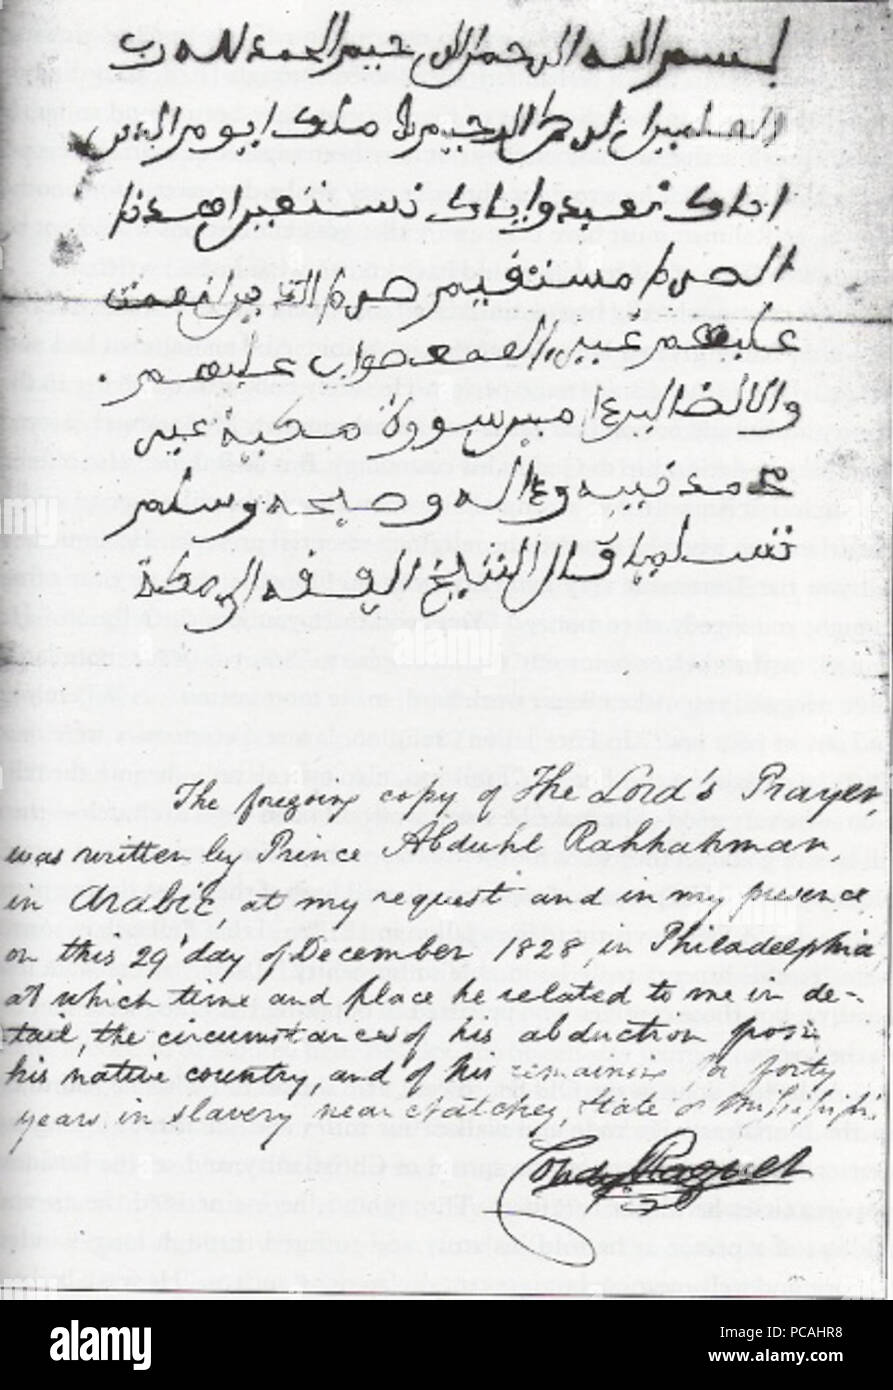 بسم الله الرحمن الرحيم الحمد لله رب
العلمين الرحمن الرحيم ملك يوم الدين
اياك نعبد واياك نستعين اهدنا
الصراط مستقيم صراط الذين انعمت
عليهم غير المغضوب عليهم
والاالضالين امين سورة مكية
وءاله وصحبه وسلم
تسليما قال الشيخ الفقه
The foregoing copy of The Lord's Prayer
was written by Prince Abduhl Rahhahman
in Arabic, at my request and in my presence
on this 29 day of December 1828, in Philadelphia
at which time and place he related to me in de-
tail, the circumstances of his abduction from
his native country, and of his remaining for forty
years in slavery near Natchez State of Missisipi.
Condy Raguet
alamy
alamy
Image ID: PCAHR8
www.alamy.com